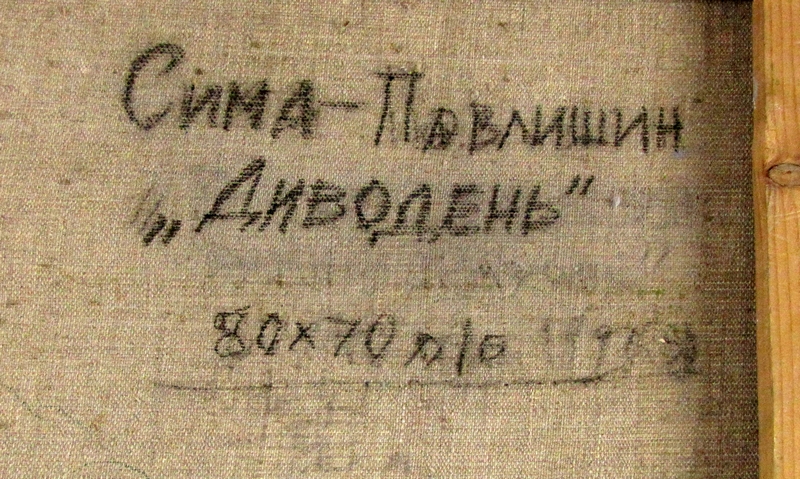 Сима-Павлишин
„Диводень"
80х70 п/о